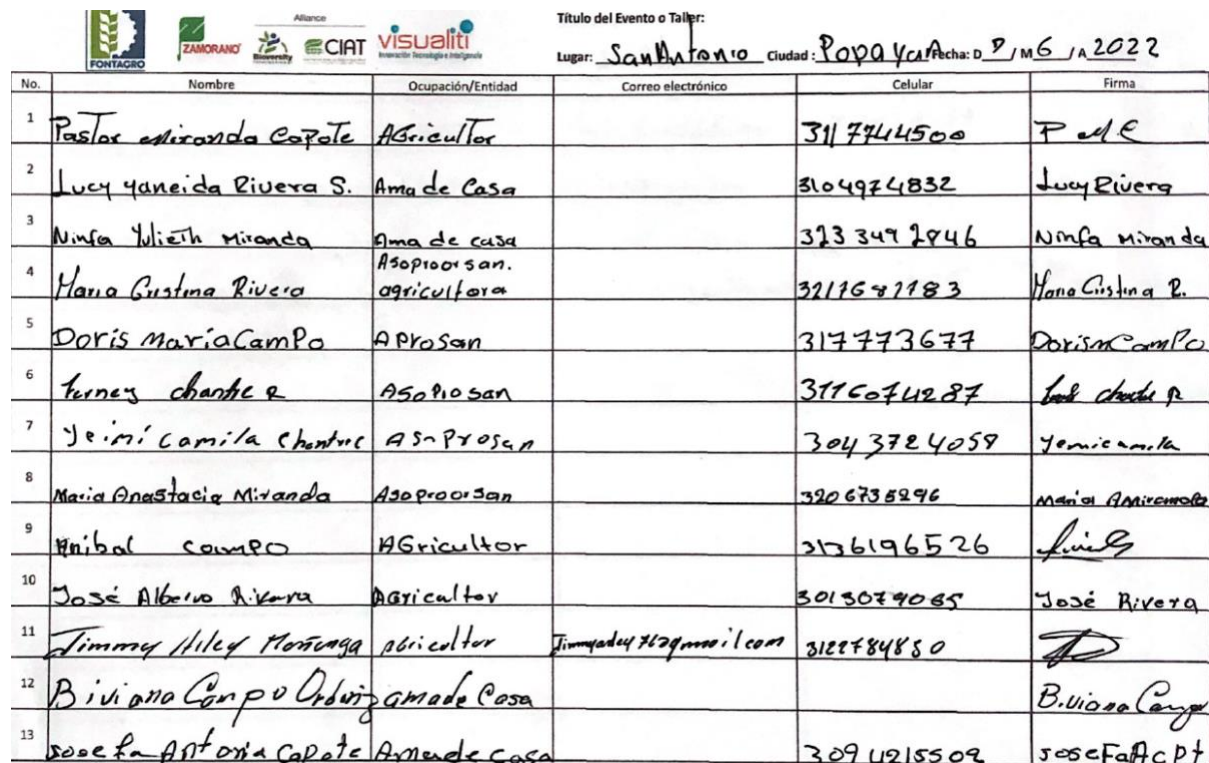 Alliance
Título del Evento o Taller:
FONTAGRO ZAMORANO Bioversity CIAT visualiti
Lugar: San Antonio Ciudad: Popayan Fecha: D 8 / M 6 / A 2022
No. Nombre Ocupación/Entidad Correo electrónico Celular Firma
1 Pastor Miranda Capote Agricultor 3117744500 P M C
2 Lucy Yaneida Rivera S. Ama de Casa 3104974832 Lucy Rivera
3 Ninfa Yulieth Miranda Ama de casa 323 349 2846 Ninfa Miranda
Asoproorsan.
4 Maria Cristina Rivera agricultora 3217687783 Maria Cristina R.
5 Doris María Campo Aprosan 317773677 Doris m Campo
6 ferney chantre R Asoprosan 3116074287 chantre R
7 Yeimi camila Chantre Asoprosan 3043724058 Yemicamila
8 Maria Anastacia Miranda Asoproorsan 3206735296 Maria A Miranda
9 Anibal campo AGricultor 3136196526
10 José Alberto Rivera Agricultor 3013079085 José Rivera
11 Jimmy agricultor 3122784850
12 Biviana Campo ama de Casa Biviana Campo
13 Josefa Antonia Capote Ama de casa 3094215509 JoseFaAcpt